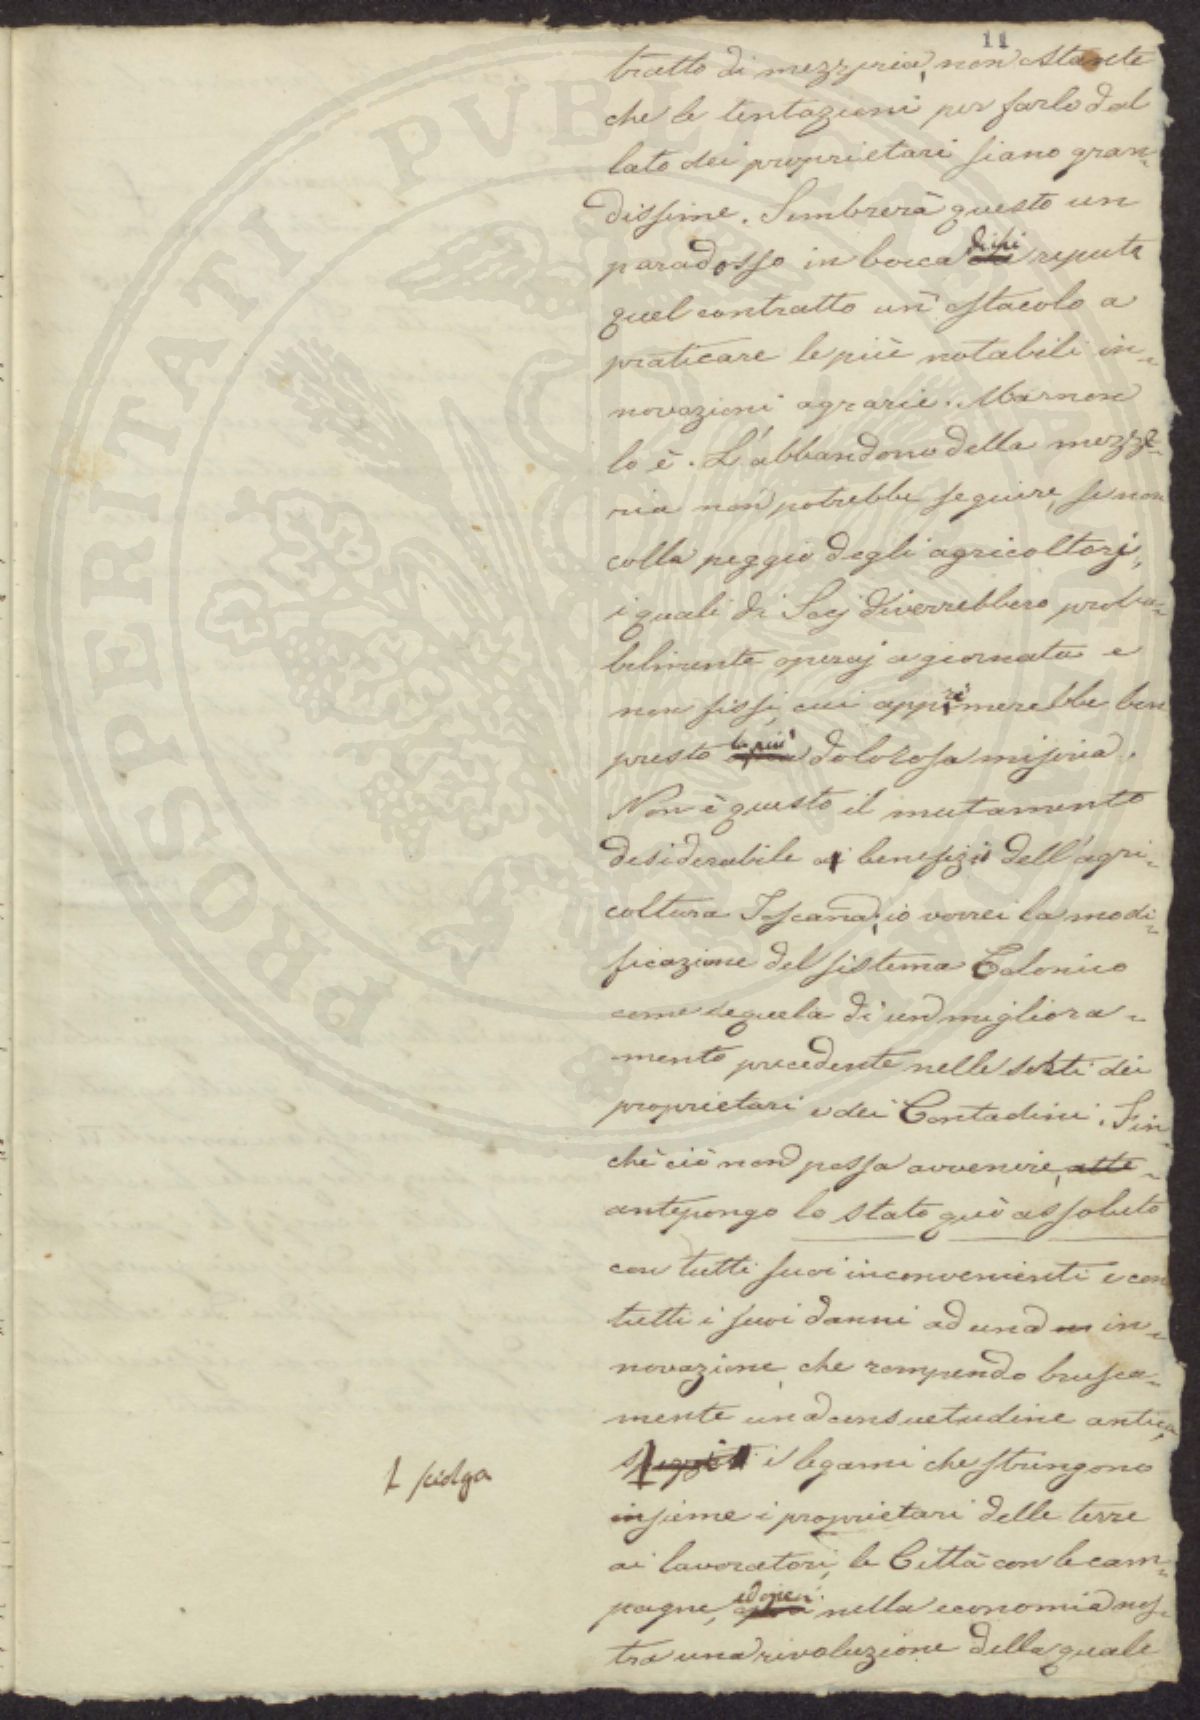 11
tratto di mezzeria, non ostante
che le tentazioni per farlo dal
lato dei proprietari siano gran=
dissime. Sembrerà questo un
paradosso in bocca di chi reputa
quel contratto un' ostacolo a
praticare le più notabili in=
novazioni agrarie. Ma non
lo è. L'abbandono della mezze=
ria non potrebbe seguire, se non
colla peggio degli agricoltori,
i quali di Socj diverrebbero proba=
bilmente operaj a giornata e
non fissi, cui opprimerebbe ben
presto la più dolorosa miseria.
Non è questo il mutamento
desiderabile a benefizio dell'agri=
coltura Toscana; io vorrei la modi=
ficazione del sistema Colonico
come sequela di un migliora=
mento precedente nelle sorti dei
proprietari e dei Contadini. Fin=
chè ciò non possa avvenire, atte=
antepongo lo stato quò assoluto
con tutti suoi inconvenienti e con
tutti i suoi danni ad una in=
novazione, che rompendo brusca=
mente una consuetudine antica,
i legami che stringono
insieme i proprietari delle terre
ai lavoratori, le Città con le cam=
pagne, ed operi nella economia nos=
tra una rivoluzione della quale
sciolga
PROSPERITATI PVBLICAE AVGENDAE